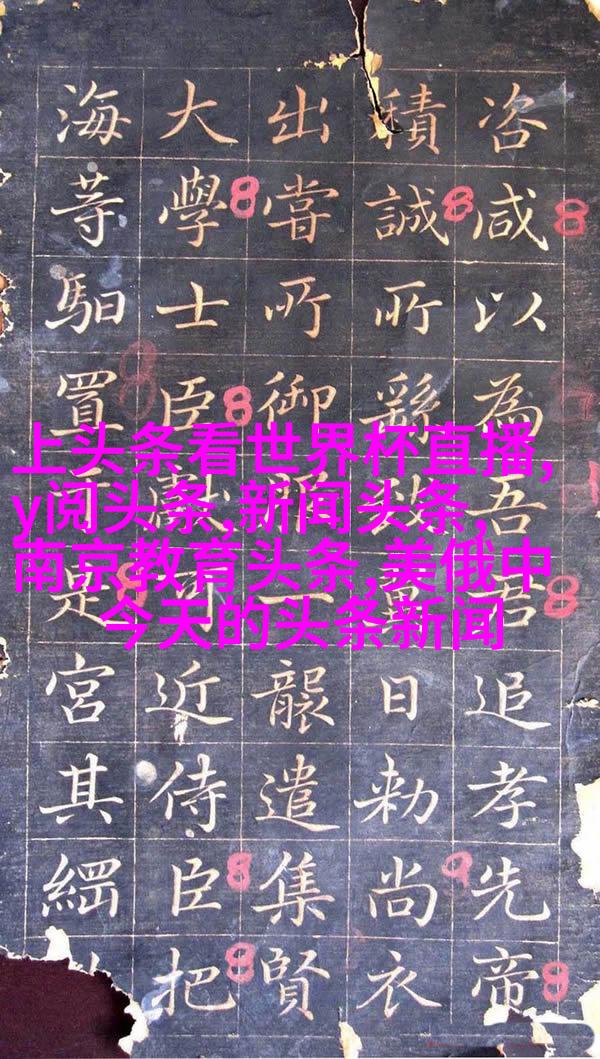 上头条看世界杯直播,
y阅头条,新闻头条,
南京教育头条,美俄中
今天的头条新闻
咨咸以為吾君追孝先帝
積誠所繇致日勑尚衣
出嘗所御服一襲遣集賢
大學士臣近侍臣把
海等馹置是宮其